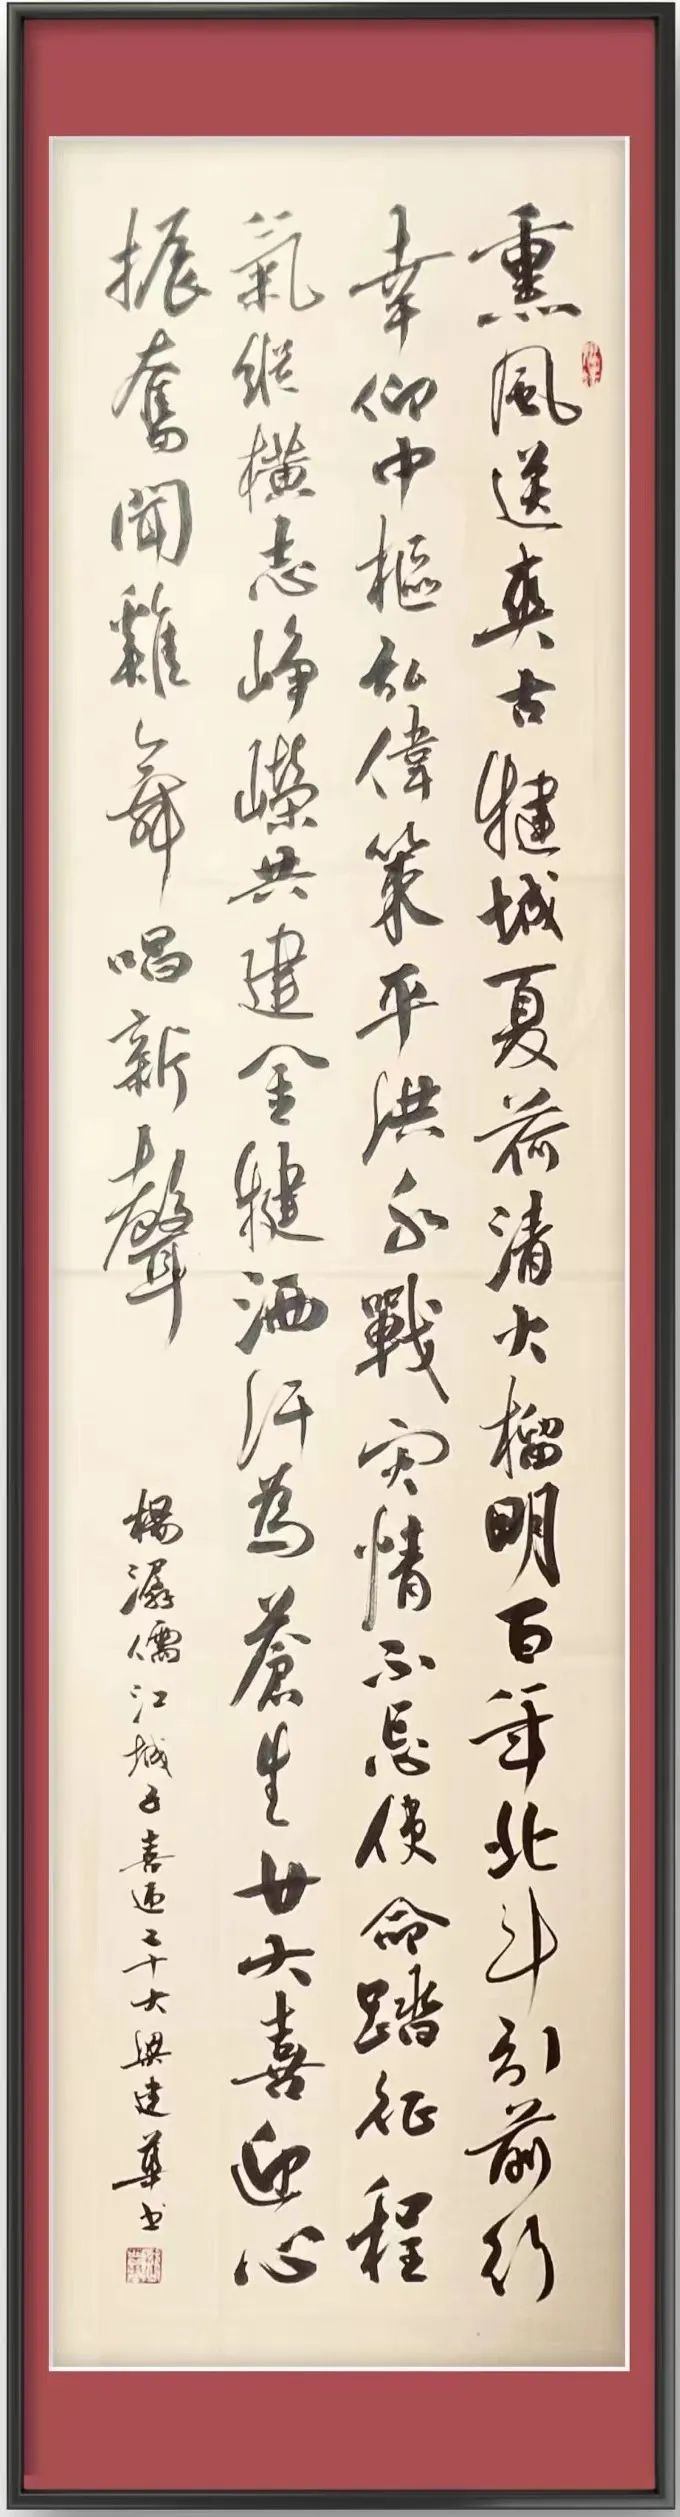 熏風送爽古犍城夏荷清火榴明百年北斗引前行
幸仰中樞弘偉策平洪水戰灾情不忘使命踏征程
氣縱橫志崢嶸共建金犍洒汗為蒼生廿大喜迎心
振奮聞雞舞唱新聲
楊潺儒江城子喜迎二十大梁建華书